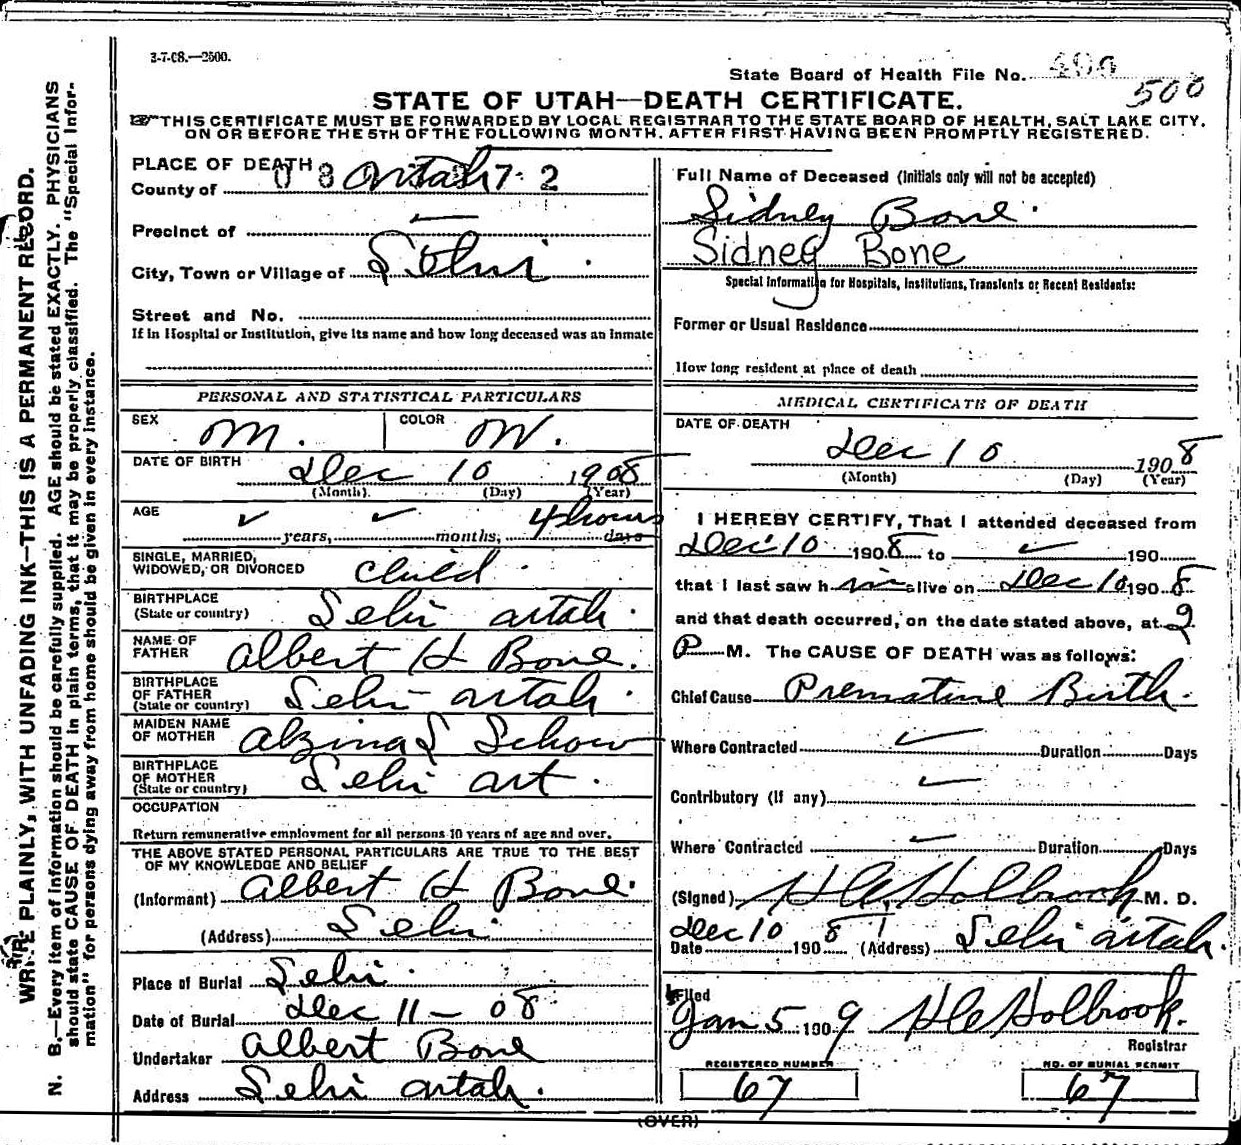 3-7-08.—2500.
State Board of Health File No.
500
STATE OF UTAH—DEATH CERTIFICATE.
THIS CERTIFICATE MUST BE FORWARDED BY LOCAL REGISTRAR TO THE STATE BOARD OF HEALTH, SALT LAKE CITY,
ON OR BEFORE THE 5TH OF THE FOLLOWING MONTH, AFTER FIRST HAVING BEEN PROMPTLY REGISTERED.
WRITE PLAINLY, WITH UNFADING INK—THIS IS A PERMANENT RECORD.
N. B.—Every item of information should be carefully supplied. AGE should be stated EXACTLY. PHYSICIANS
should state CAUSE OF DEATH in plain terms, that it may be properly classified. The "Special Infor-
mation" for persons dying away from home should be given in every instance.
PLACE OF DEATH
County of Utah
Precinct of
City, Town or Village of Lehi
Street and No.
If in Hospital or Institution, give its name and how long deceased was an inmate
PERSONAL AND STATISTICAL PARTICULARS
SEX M. COLOR W.
DATE OF BIRTH Dec 10 1908
(Month) (Day) (Year)
AGE
years, months, 4 hours days
SINGLE, MARRIED,
WIDOWED, OR DIVORCED child
BIRTHPLACE
(State or country) Lehi Utah
NAME OF
FATHER Albert H Bone.
BIRTHPLACE
OF FATHER
(State or country) Lehi Utah
MAIDEN NAME
OF MOTHER Alzina S Schow
BIRTHPLACE
OF MOTHER
(State or country) Lehi Ut.
OCCUPATION
Return remunerative employment for all persons 10 years of age and over.
THE ABOVE STATED PERSONAL PARTICULARS ARE TRUE TO THE BEST
OF MY KNOWLEDGE AND BELIEF
(Informant) Albert H Bone.
(Address) Lehi
Place of Burial Lehi
Date of Burial Dec 11 - 08
Undertaker Albert Bone
Address Lehi Utah.
Full Name of Deceased (Initials only will not be accepted)
Sidney Bone
Sidney Bone
Special Information for Hospitals, Institutions, Transients or Recent Residents:
Former or Usual Residence
How long resident at place of death
MEDICAL CERTIFICATE OF DEATH
DATE OF DEATH
Dec 10 1908
(Month) (Day) (Year)
I HEREBY CERTIFY, That I attended deceased from
Dec 10 1908 to 190
that I last saw him alive on Dec 10 1908
and that death occurred, on the date stated above, at 2
P M. The CAUSE OF DEATH was as follows:
Chief Cause Premature Birth.
Where Contracted Duration Days
Contributory (if any)
Where Contracted Duration Days
(Signed) H Holbrook M. D.
Dec 10
Date 1908 (Address) Lehi Utah.
Filed
Jan 5 1909 Holbrook.
Registrar
REGISTERED NUMBER
67
NO. OF BURIAL PERMIT
67
(OVER)